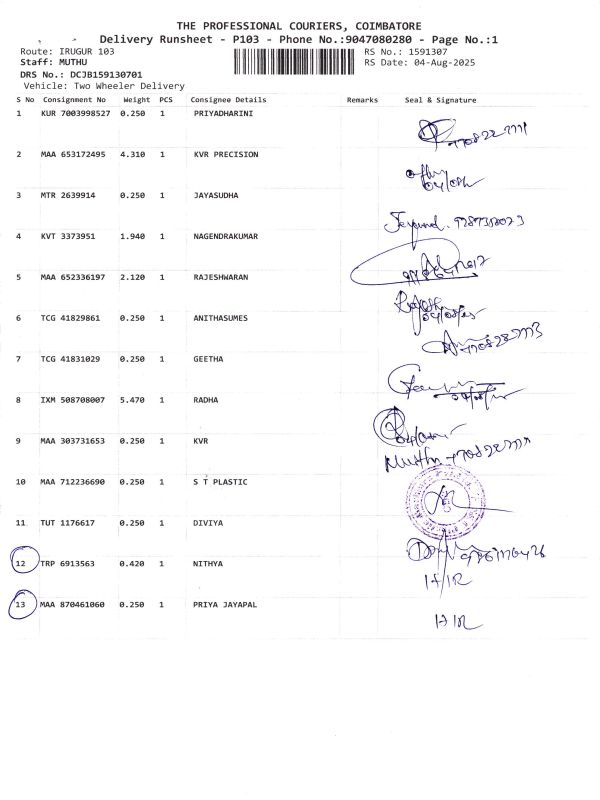 THE PROFESSIONAL COURIERS, COIMBATORE
Delivery Runsheet - P103 - Phone No.:9047080280 - Page No.:1
Route: IRUGUR 103
RS No.: 1591307
Staff: MUTHU
RS Date: 04-Aug-2025
DRS No.: DCJB159130701
Vehicle: Two Wheeler Delivery
S No Consignment No Weight PCS Consignee Details Remarks Seal & Signature
1 KUR 7003998527 0.250 1 PRIYADHARINI
2 MAA 653172495 4.310 1 KVR PRECISION
3 MTR 2639914 0.250 1 JAYASUDHA
4 KVT 3373951 1.940 1 NAGENDRAKUMAR
5 MAA 652336197 2.120 1 RAJESHWARAN
6 TCG 41829861 0.250 1 ANITHASUMES
7 TCG 41831029 0.250 1 GEETHA
8 IXM 508708007 5.470 1 RADHA
9 MAA 303731653 0.250 1 KVR
Muthu
10 MAA 712236690 0.250 1 S T PLASTIC
11 TUT 1176617 0.250 1 DIVIYA
12 TRP 6913563 0.420 1 NITHYA
13 MAA 870461060 0.250 1 PRIYA JAYAPAL